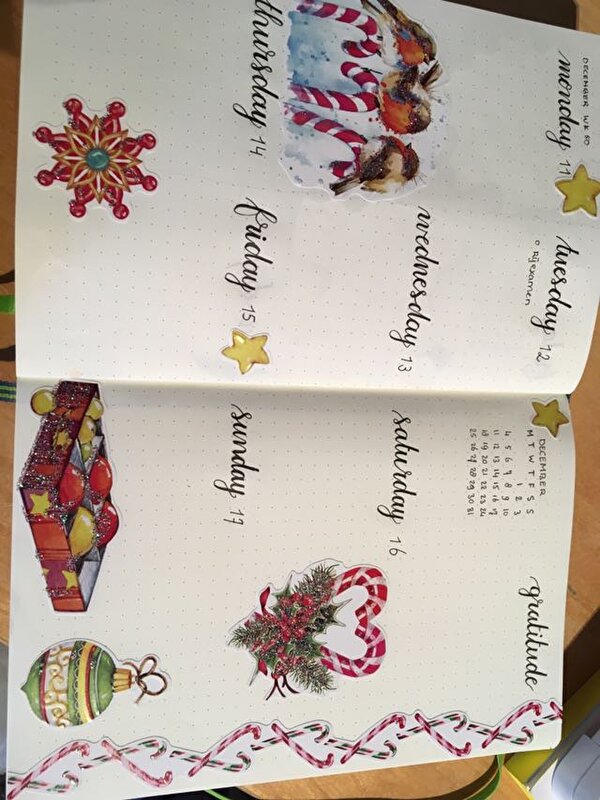 DECEMBER WK 50
monday 11
tuesday 12
o Rijexamen
wednesday 13
thursday 14
friday 15
DECEMBER
M T W T F S S
1 2 3
4 5 6 7 8 9 10
11 12 13 14 15 16 17
18 19 20 21 22 23 24
25 26 27 28 29 30 31
gratitude
saturday 16
sunday 17